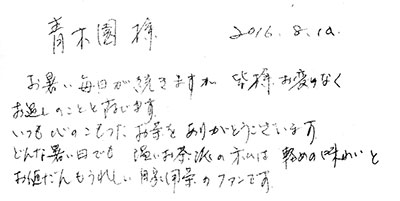 青木園様 2016.8.10.
お暑い毎日が続きますが 皆様お変りなく
お過しのことと存じます
いつも心のこもったお茶をありがとうございます
どんな暑い日でも 温いお茶派の私は 軽めの味わいと
お値だんもうれしい 用茶のファンです